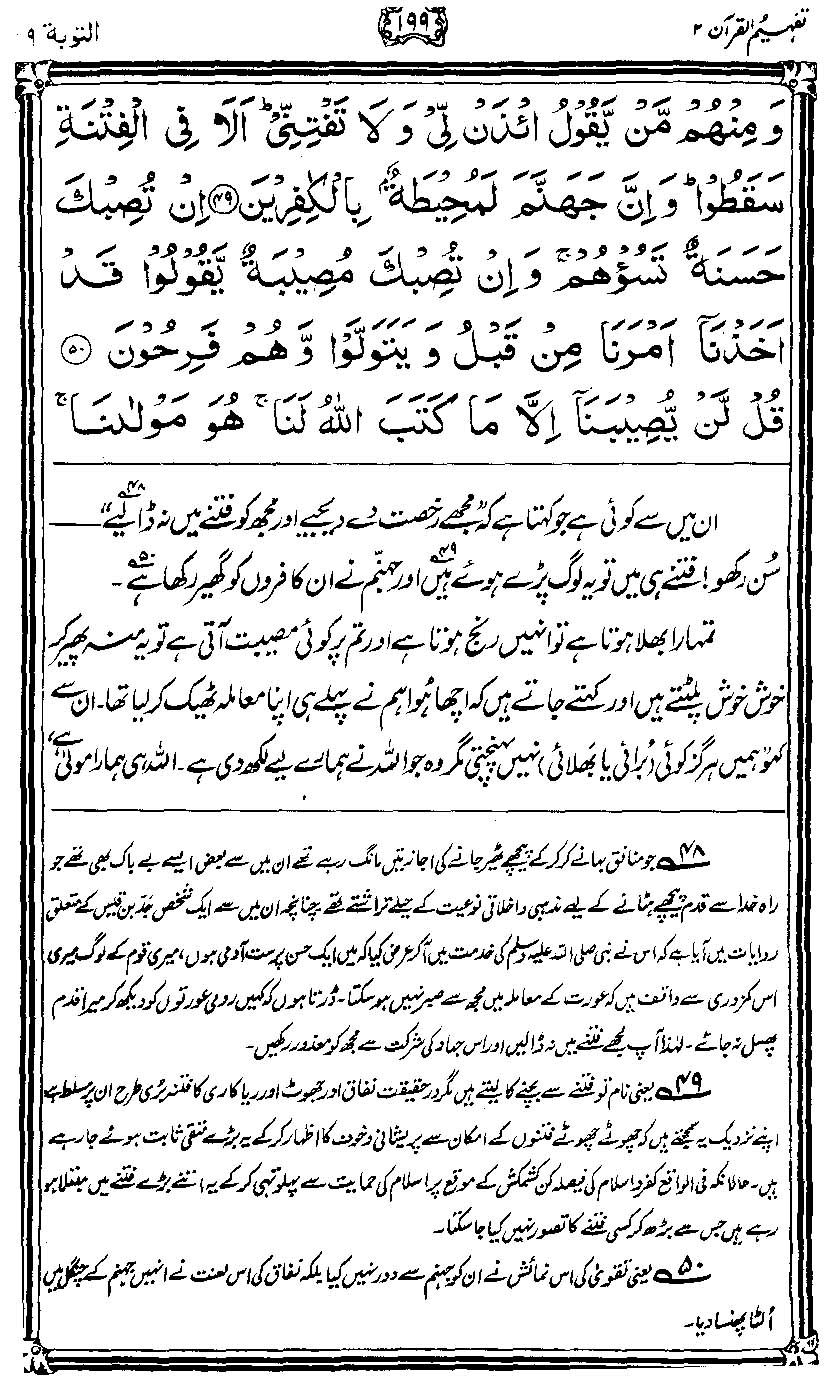 تفہیم القرآن ۲
۱۹۹
التوبة ۹
وَ مِنْهُمْ مَّنْ يَّقُوْلُ ائْذَنْ لِّیْ وَ لَا تَفْتِنِّیْ ؕ اَلَا فِی الْفِتْنَةِ
سَقَطُوْا ؕ وَ اِنَّ جَهَنَّمَ لَمُحِیْطَةٌۢ بِالْكٰفِرِیْنَ ﴿۴۹﴾ اِنْ تُصِبْكَ
حَسَنَةٌ تَسُؤْهُمْ ۚ وَ اِنْ تُصِبْكَ مُصِیْبَةٌ یَّقُوْلُوْا قَدْ
اَخَذْنَاۤ اَمْرَنَا مِنْ قَبْلُ وَ یَتَوَلَّوْا وَّ هُمْ فَرِحُوْنَ ﴿۵۰﴾
قُلْ لَّنْ یُّصِیْبَنَاۤ اِلَّا مَا كَتَبَ اللّٰهُ لَنَا ۚ هُوَ مَوْلٰىنَا ۚ
ان میں سے کوئی ہے جو کہتا ہے کہ ”مجھے رخصت دے دیجیے اور مجھ کو فتنے میں نہ ڈالیے“ ۴۸ ——
سُن رکھو! فتنے ہی میں تو یہ لوگ پڑے ہوئے ہیں ۴۹ اور جہنّم نے ان کافروں کو گھیر رکھا ہے ۵۰۔
تمہارا بھلا ہوتا ہے تو انہیں رنج ہوتا ہے اور تم پر کوئی مصیبت آتی ہے تو یہ منہ پھیر کر
خوش خوش پلٹتے ہیں اور کہتے جاتے ہیں کہ اچھا ہُوا ہم نے پہلے ہی اپنا معاملہ ٹھیک کر لیا تھا۔ ان سے
کہو ”ہمیں ہرگز کوئی (بُرائی یا بَھلائی) نہیں پہنچتی مگر وہ جو اللہ نے ہمارے لیے لکھ دی ہے۔ اللہ ہی ہمارا مولیٰ ہے،
۴۸ جو منافق بہانے کر کر کے پیچھے ٹھیر جانے کی اجازتیں مانگ رہے تھے ان میں سے بعض ایسے بے باک بھی تھے جو
راہ خدا سے قدم پیچھے ہٹانے کے لیے مذہبی و اخلاقی نوعیت کے حیلے تراشتے تھے چنانچہ ان میں سے ایک شخص جد بن قیس کے متعلق
روایات میں آیا ہے کہ اس نے نبی صلی اللہ علیہ وسلم کی خدمت میں آ کر عرض کیا کہ میں ایک حسن پرست آدمی ہوں، میری قوم کے لوگ میری
اس کمزوری سے واقف ہیں کہ عورت کے معاملہ میں مجھ سے صبر نہیں ہو سکتا۔ ڈرتا ہوں کہ کہیں رومی عورتوں کو دیکھ کر میرا قدم
پھسل نہ جائے۔ لہٰذا آپ مجھے فتنے میں نہ ڈالیں اور اس جہاد کی شرکت سے مجھ کو معذور رکھیں۔
۴۹ یعنی نام تو فتنے سے بچنے کا لیتے ہیں مگر درحقیقت نفاق اور جھوٹ اور ریاکاری کا فتنہ بُری طرح ان پر مسلط ہے
اپنے نزدیک یہ سمجھتے ہیں کہ چھوٹے چھوٹے فتنوں کے امکان سے پریشانی و خوف کا اظہار کر کے یہ بڑے متقی ثابت ہوئے جا رہے
ہیں۔ حالانکہ فی الواقع کفر و اسلام کی فیصلہ کن کشمکش کے موقع پر اسلام کی حمایت سے پہلو تہی کر کے یہ اتنے بڑے فتنے میں مبتلا ہو
رہے ہیں جس سے بڑھ کر کسی فتنے کا تصور نہیں کیا جا سکتا۔
۵۰ یعنی تقویٰ کی اس نمائش نے ان کو جہنم سے دور نہیں کیا بلکہ نفاق کی اس لعنت نے انہیں جہنم کے چنگل میں
اُلٹا پھنسا دیا۔